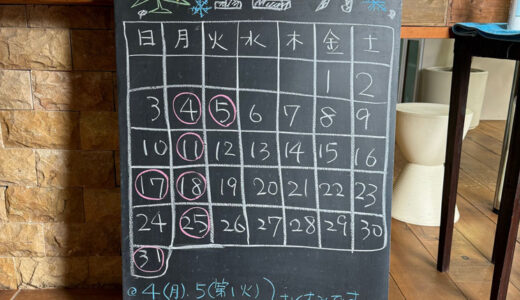 日 月 火 水 木 金 土
1 2
3 4 5 6 7 8 9
10 11 12 13 14 15 16
17 18 19 20 21 22 23
24 25 26 27 28 29 30
31
4(月).5(第1火)